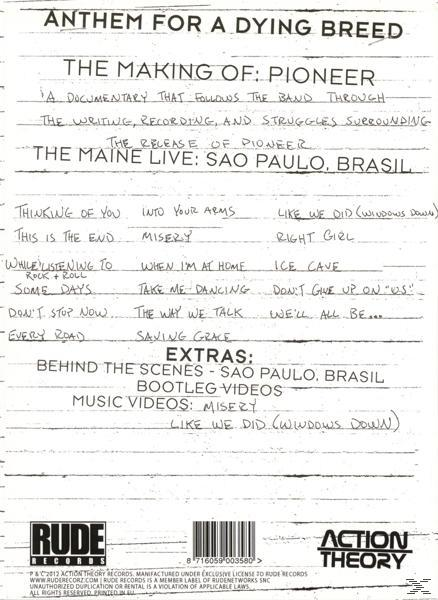 ANTHEM FOR A DYING BREED
THE MAKING OF: PIONEER
A DOCUMENTARY THAT FOLLOWS THE BAND THROUGH
THE WRITING, RECORDING, AND STRUGGLES SURROUNDING
THE RELEASE OF PIONEER
THE MAINE LIVE: SAO PAULO, BRASIL
THINKING OF YOU INTO YOUR ARMS LIKE WE DID (WINDOWS DOWN)
THIS IS THE END MISERY RIGHT GIRL
WHILE LISTENING TO ROCK + ROLL WHEN I'M AT HOME ICE CAVE
SOME DAYS TAKE ME DANCING DON'T GIVE UP ON "US"
DON'T STOP NOW THE WAY WE TALK WE'LL ALL BE...
EVERY ROAD SAVING GRACE
EXTRAS:
BEHIND THE SCENES - SAO PAULO, BRASIL
BOOTLEG VIDEOS
MUSIC VIDEOS: MISERY
LIKE WE DID (WINDOWS DOWN)
RUDE
RECORDS
8 716059 003580 >
ACTION
THEORY
P & C 2012 ACTION THEORY RECORDS. MANUFACTURED UNDER EXCLUSIVE LICENSE TO RUDE RECORDS
WWW.RUDERECORZ.COM | RUDE RECORDS IS A MEMBER LABEL OF RUDENETWORKS SNC
UNAUTHORIZED DUPLICATION OR RENTAL IS A VIOLATION OF APPLICABLE LAWS.
ALL RIGHTS RESERVED. PRINTED IN EU.